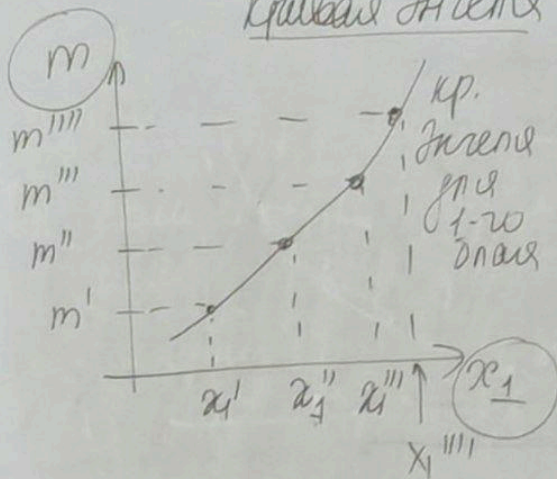 Кривая Энгеля
m
m''''
m'''
m''
m'
кр.
Энгеля
для
1-го
блага
x₁'
x₁''
x₁'''
x₁
x₁''''